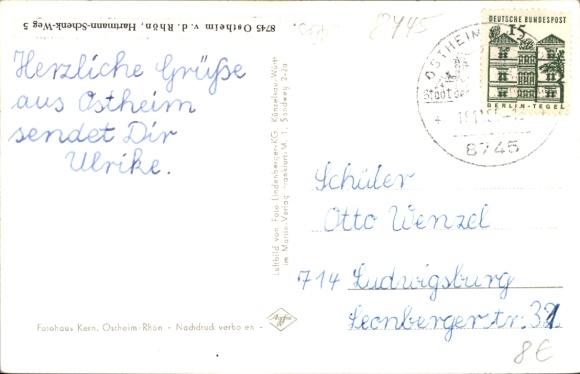 8745 Ostheim v. d. Rhön, Hartmann-Schenk-Weg 5
Herzliche Grüße
aus Ostheim
sendet Dir
Ulrike.
Luftbild von Foto Lindenberger-KG Künzelsau/Württ
im Martin-Verlag Frankfurt/M. 1, Sandweg
Fotohaus Kern, Ostheim-Rhön - Nachdruck verboten -
Agfa
8745
DEUTSCHE BUNDESPOST
15
BERLIN-TEGEL
OSTHEIM
Stadt der
8745
Schüler
Otto Wenzel
714 Ludwigsburg
Leonbergerstr. 31
8€